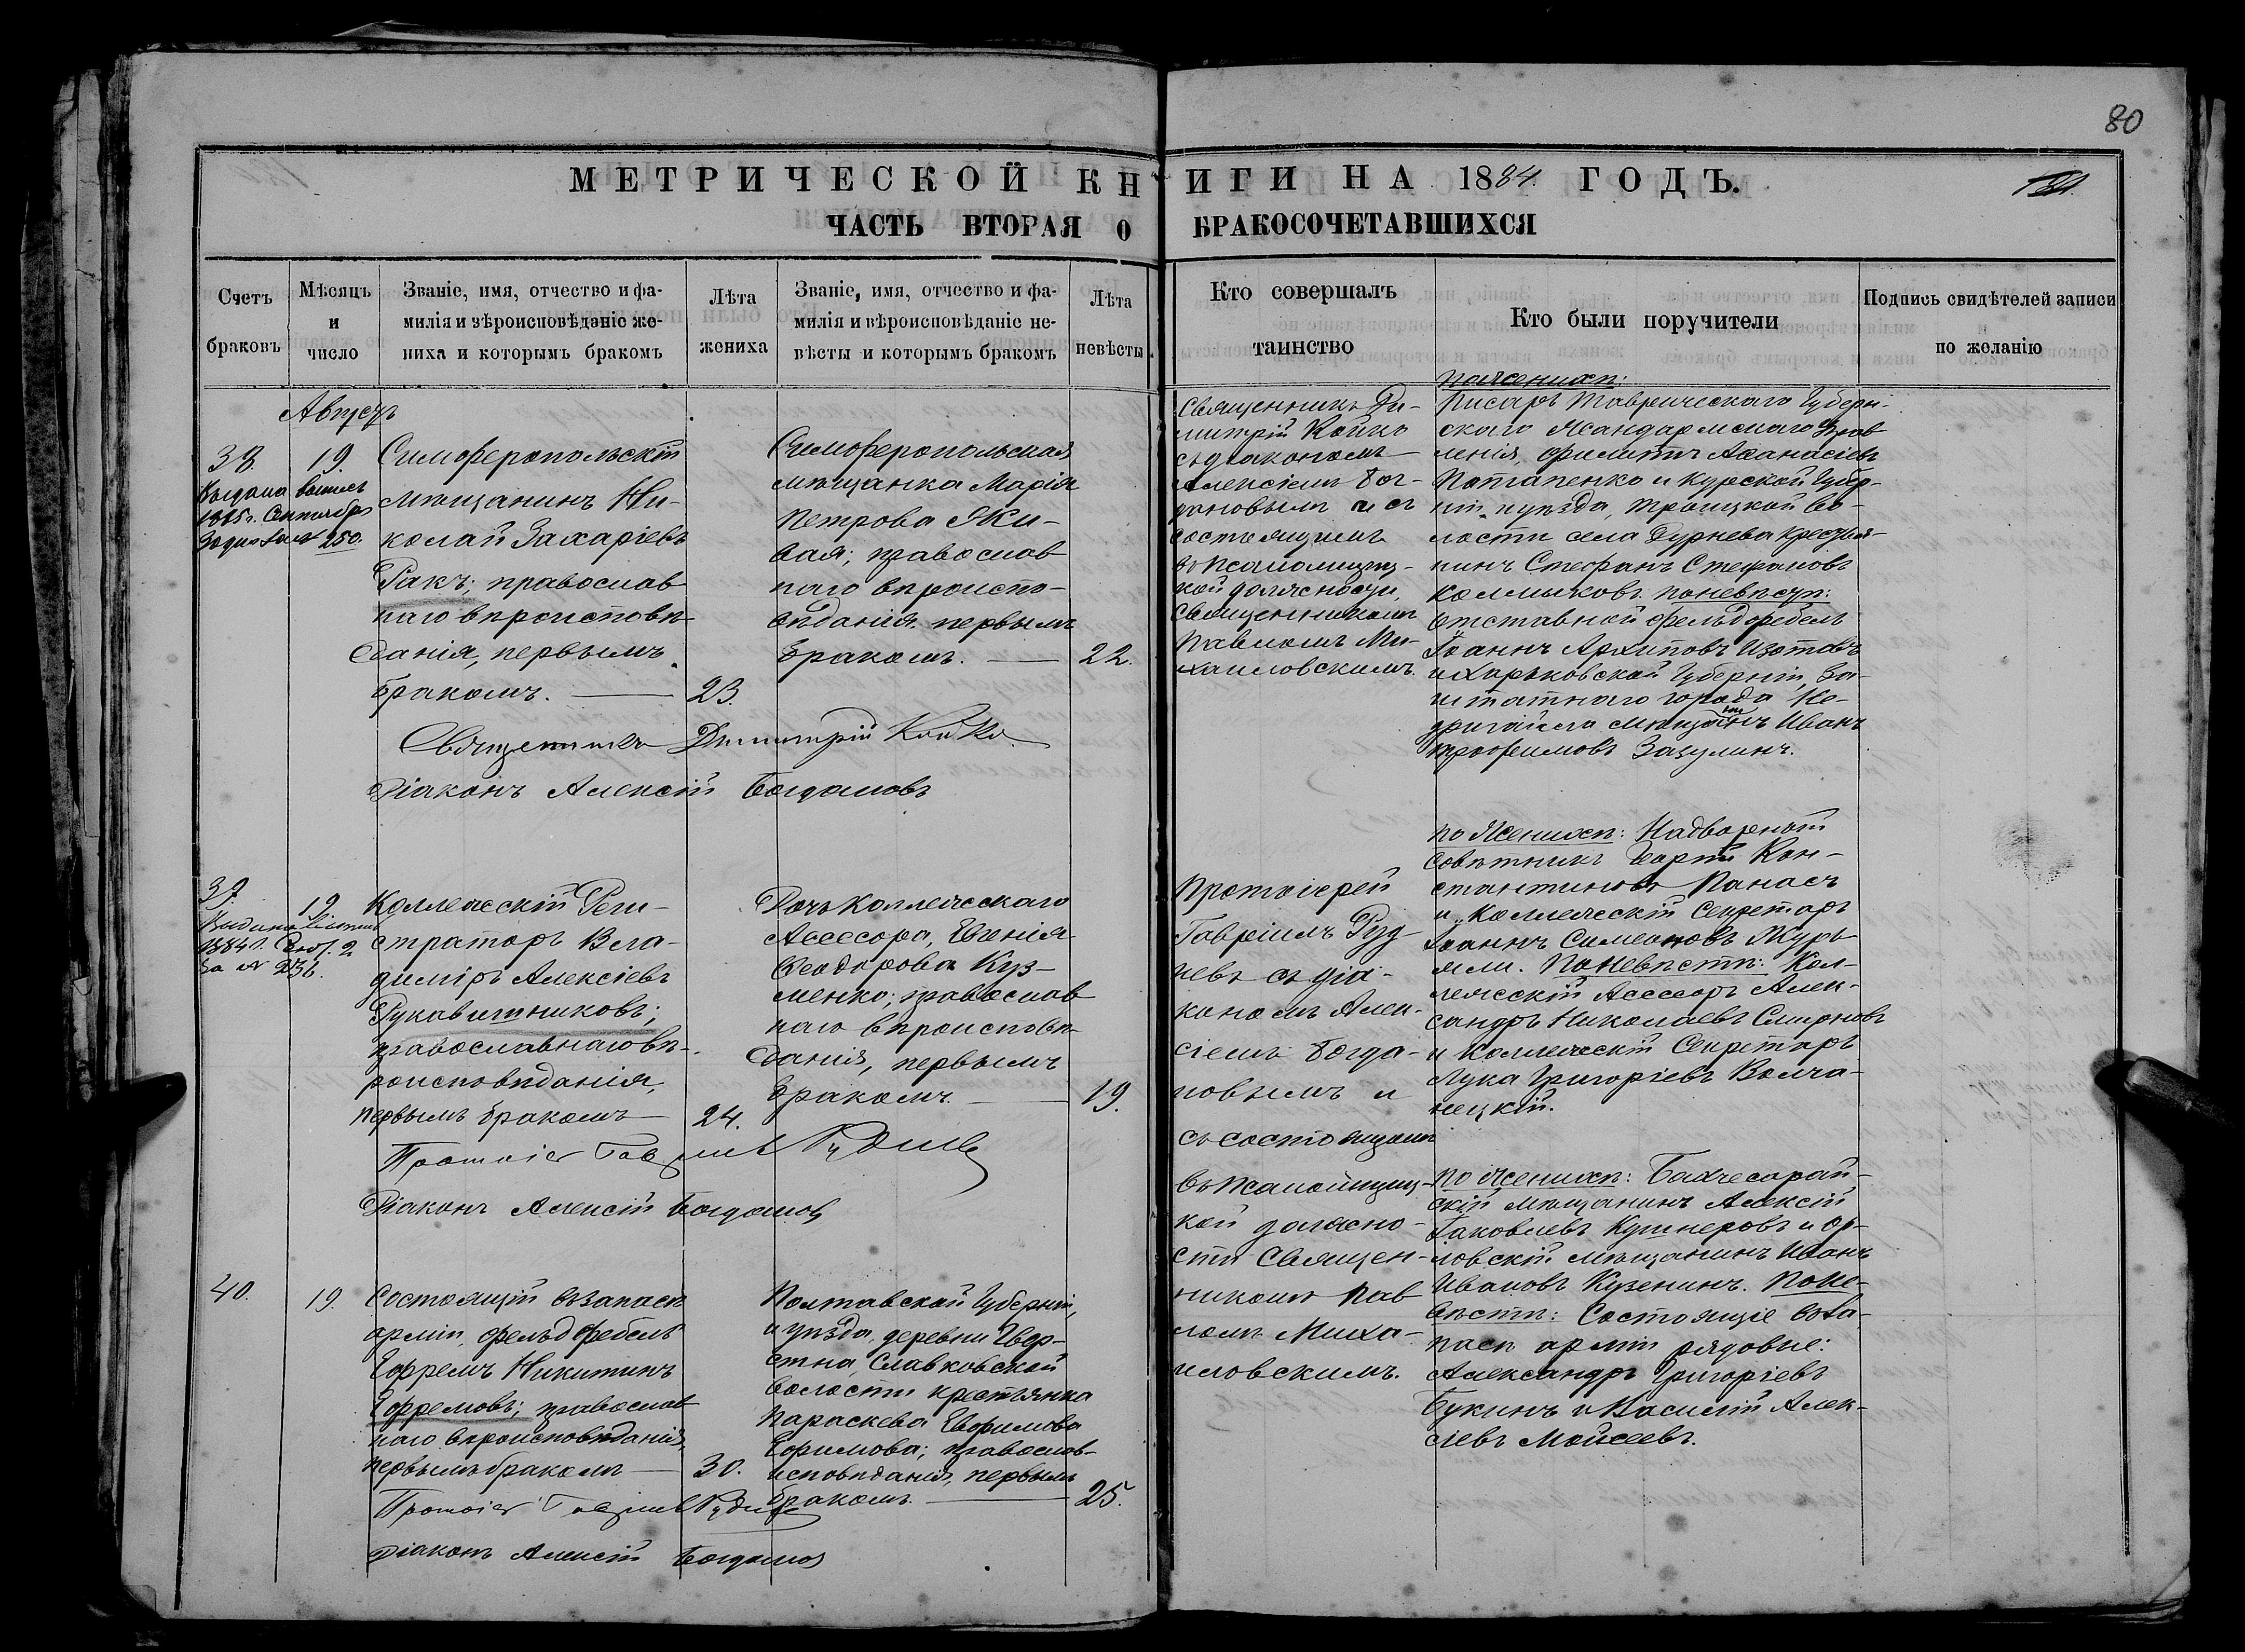 80
МЕТРИЧЕСКОЙ КНИГИ НА 1884. ГОДЪ.
ЧАСТЬ ВТОРАЯ О БРАКОСОЧЕТАВШИХСЯ
Счетъ браковъ
Мѣсяцъ и число
Званіе, имя, отчество и фа-
милія и вѣроисповѣданіе же-
ниха и которымъ бракомъ
Лѣта жениха
Званіе, имя, отчество и фа-
милія и вѣроисповѣданіе не-
вѣсты и которымъ бракомъ
Лѣта невѣсты.
Кто совершалъ
таинство
Кто были поручители
Подпись свидѣтелей записи
по желанію
Августъ
38.
19.
1885 г. Сентября
за № 250.
Симферопольскій
мѣщанинъ Ни-
колай Захаріевъ
Ракъ; православ
наго вѣроисповѣ
данія, первымъ
бракомъ.
23.
Симферопольская
мѣщанка Марія
Петрова Яки-
вая; православ
наго вѣроиспо-
вѣданія, первымъ
бракомъ.
22.
Священникъ Димитрій Койко
Діаконъ Алексій Богдановъ
Священникъ Ди-
митрій Койко
съ діакономъ
Алексіемъ Бог-
дановымъ и съ
состоящимъ
въ псаломщиц-
кой должности,
Священникомъ
Павломъ Ми-
хаиловскимъ.
по женихѣ:
Писарь Таврическаго Губерн-
скаго Жандармскаго Управ
ленія, Филиппъ Аѳанасіевъ
Потапенко и Курской Губер-
ніи, и уѣзда, Троицкой во-
лости села Дурнева крестья-
нинъ Стефанъ Стефановъ
Калмыковъ. по невѣстѣ:
отставной фельдфебель
Іоаннъ Архиповъ Изотовъ
и Харьковской Губерніи, За-
штатнаго города Не-
дригайла мѣщанинъ Иванъ
Трофимовъ Зазулинъ.
39.
19.
1884 г.
за № 236.
Коллежскій Реги-
страторъ Вла-
диміръ Алексіевъ
Рукавишниковъ;
православнаго вѣ-
роисповѣданія,
первымъ бракомъ
24.
Дочь Коллежскаго
Ассесора, Евгенія
Ѳеодорова Куз-
менко; православ
наго вѣроисповѣ
данія, первымъ
бракомъ.
19.
Протоіер Гавріилъ Рудневъ
Діаконъ Алексій Богдановъ
Протоіерей
Гавріилъ Руд
невъ съ діа-
кономъ Алек-
сіемъ Богда-
новымъ и
съ состоящимъ
въ псаломщиц-
кой должно-
сти Священ-
никомъ Пав
ломъ Миха-
иловскимъ.
по женихѣ: Надворный
совѣтникъ Георгій Кон-
стантиновъ Панасъ
и Коллежскій Секретарь
Іоаннъ Симеоновъ Журь
яли. По невѣстѣ: Кол-
лежскій Асессоръ Алек-
сандръ Николаевъ Смирновъ
и Коллежскій Секретарь
Лука Григоріевъ Волча-
нецкій.
40.
19.
Состоящій въ запасѣ
арміи, фельдфебель
Ефремъ Никитинъ
Ефремовъ; православ
наго вѣроисповѣданія
первымъ бракомъ
30.
Полтавской Губерніи,
и уѣзда, деревни
Славковской
волости крестьянка
Параскева Евфимова
Ефимова; православ-
исповѣданія, первымъ
бракомъ.
25.
Протоіер Гавріилъ Рудневъ
Діаконъ Алексій Богдановъ
по женихѣ: Бахчесарай-
скій мѣщанинъ Алексій
Іаковлевъ Кушнеровъ и Ор-
ловскій мѣщанинъ Иванъ
Ивановъ Кузенинъ. По не-
вѣстѣ: Состоящіе въ за-
пасѣ арміи рядовые:
Александръ Григоріевъ
Букинъ и Василій Алек-
сіевъ Мойсеевъ.